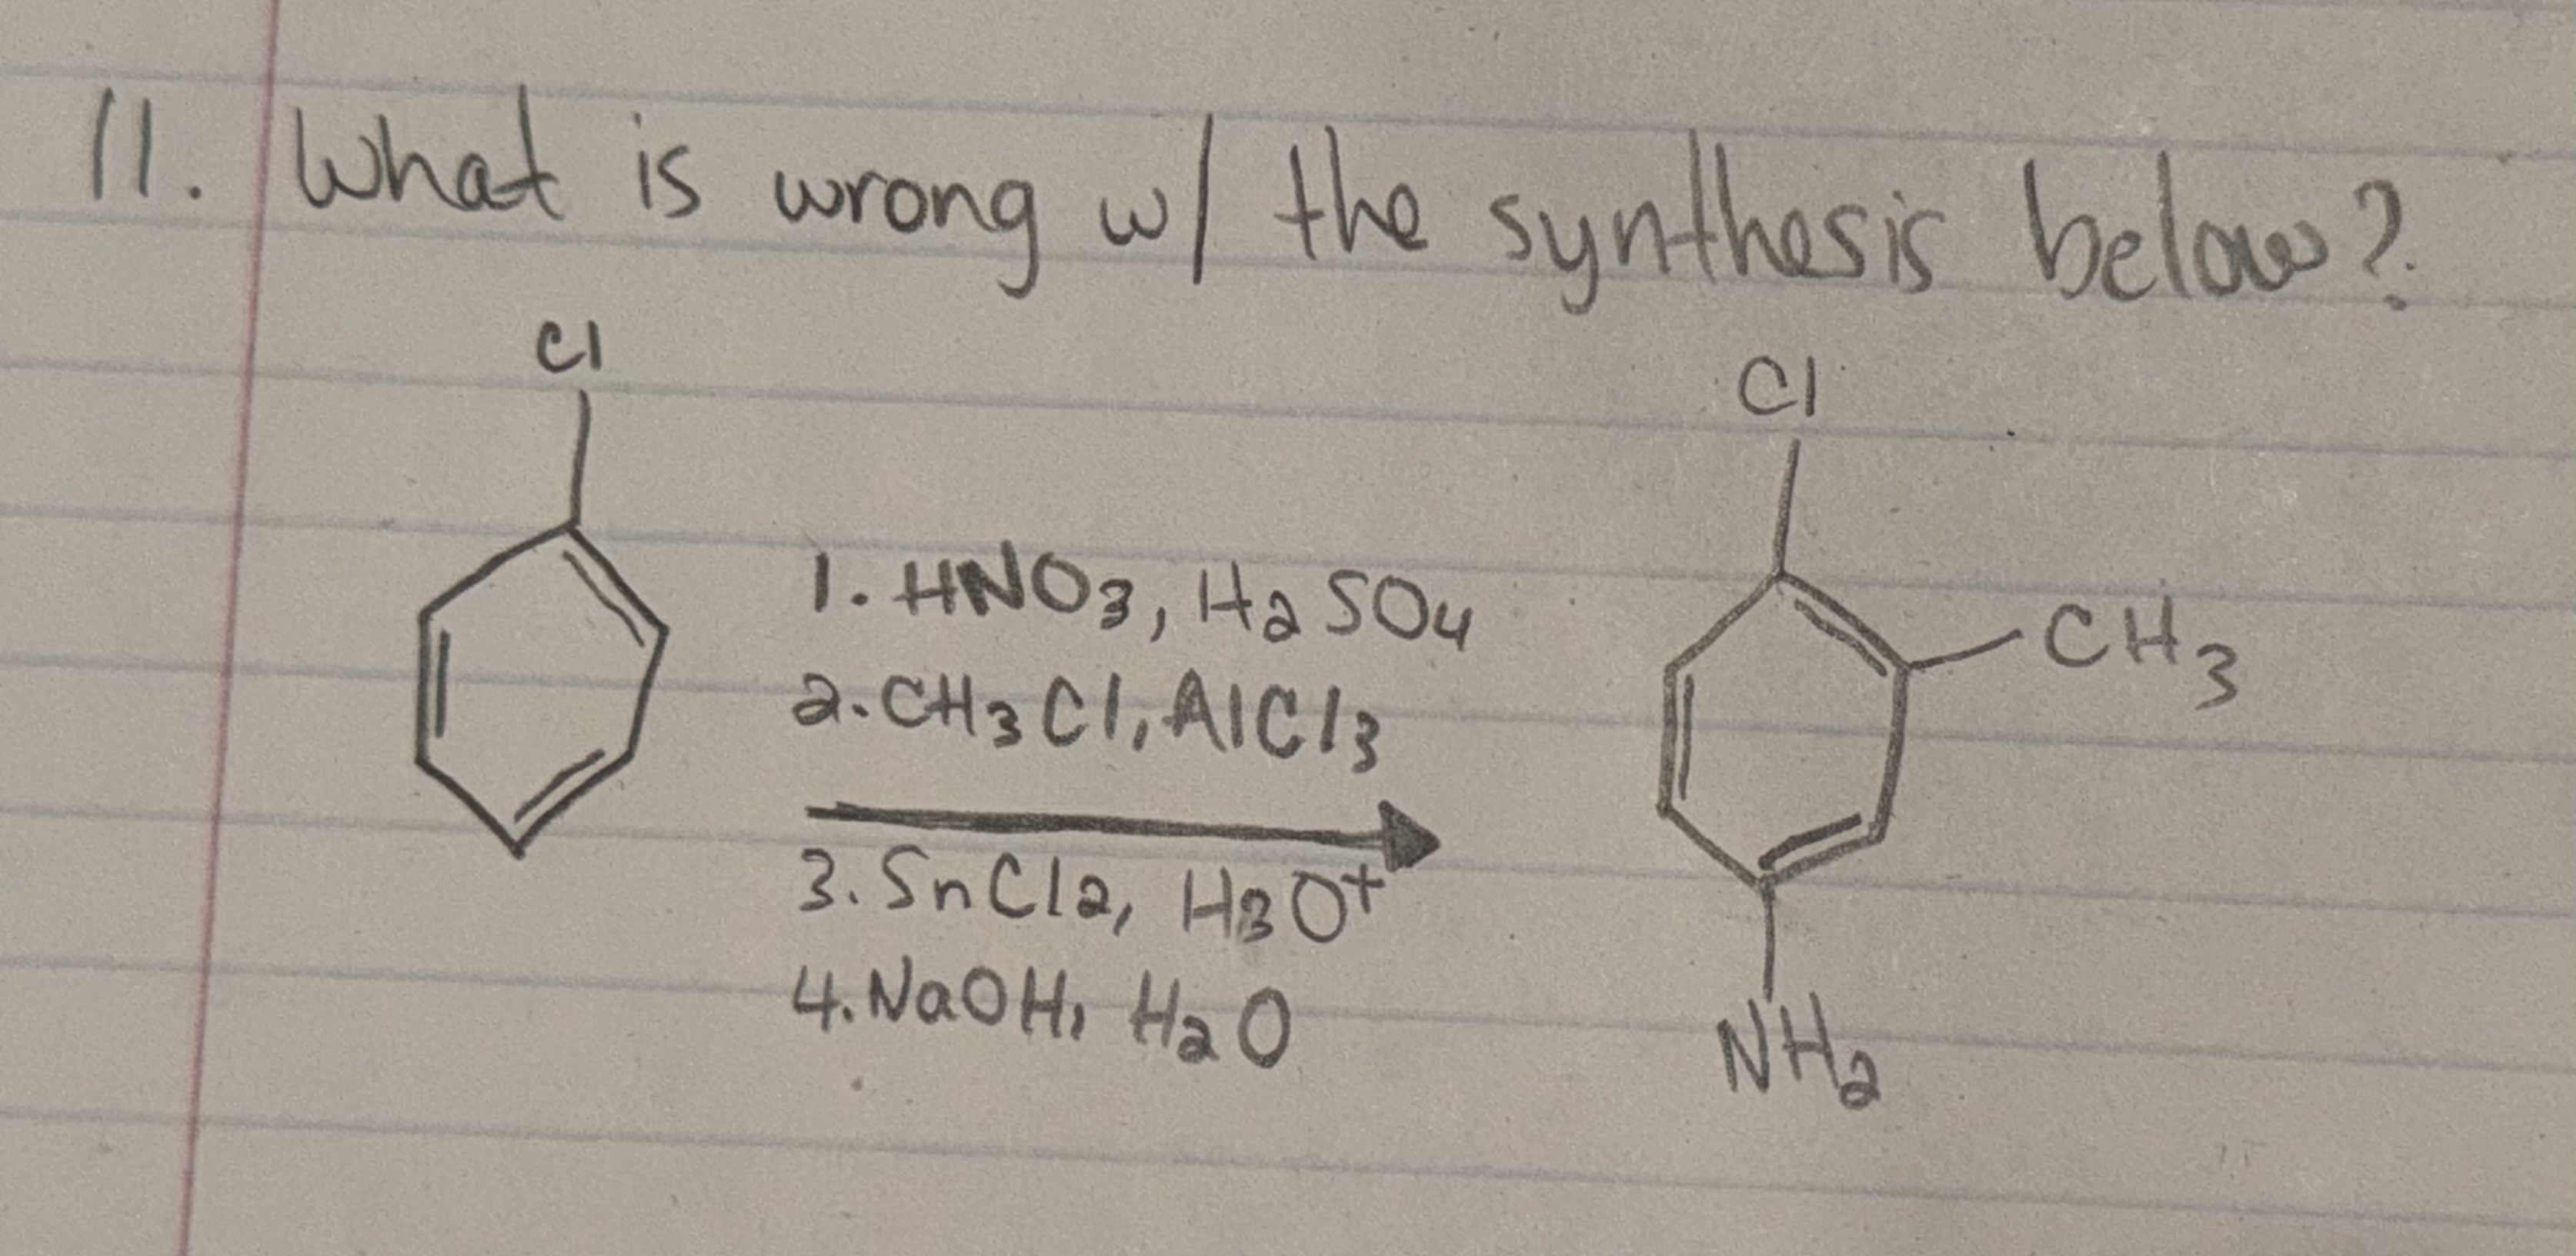 11. What is wrong w/ the synthesis below?
Cl
Cl
1. HNO3, H2SO4
CH3
2. CH3Cl, AlCl3
3. SnCl2, H3O+
4. NaOH, H2O
NH2